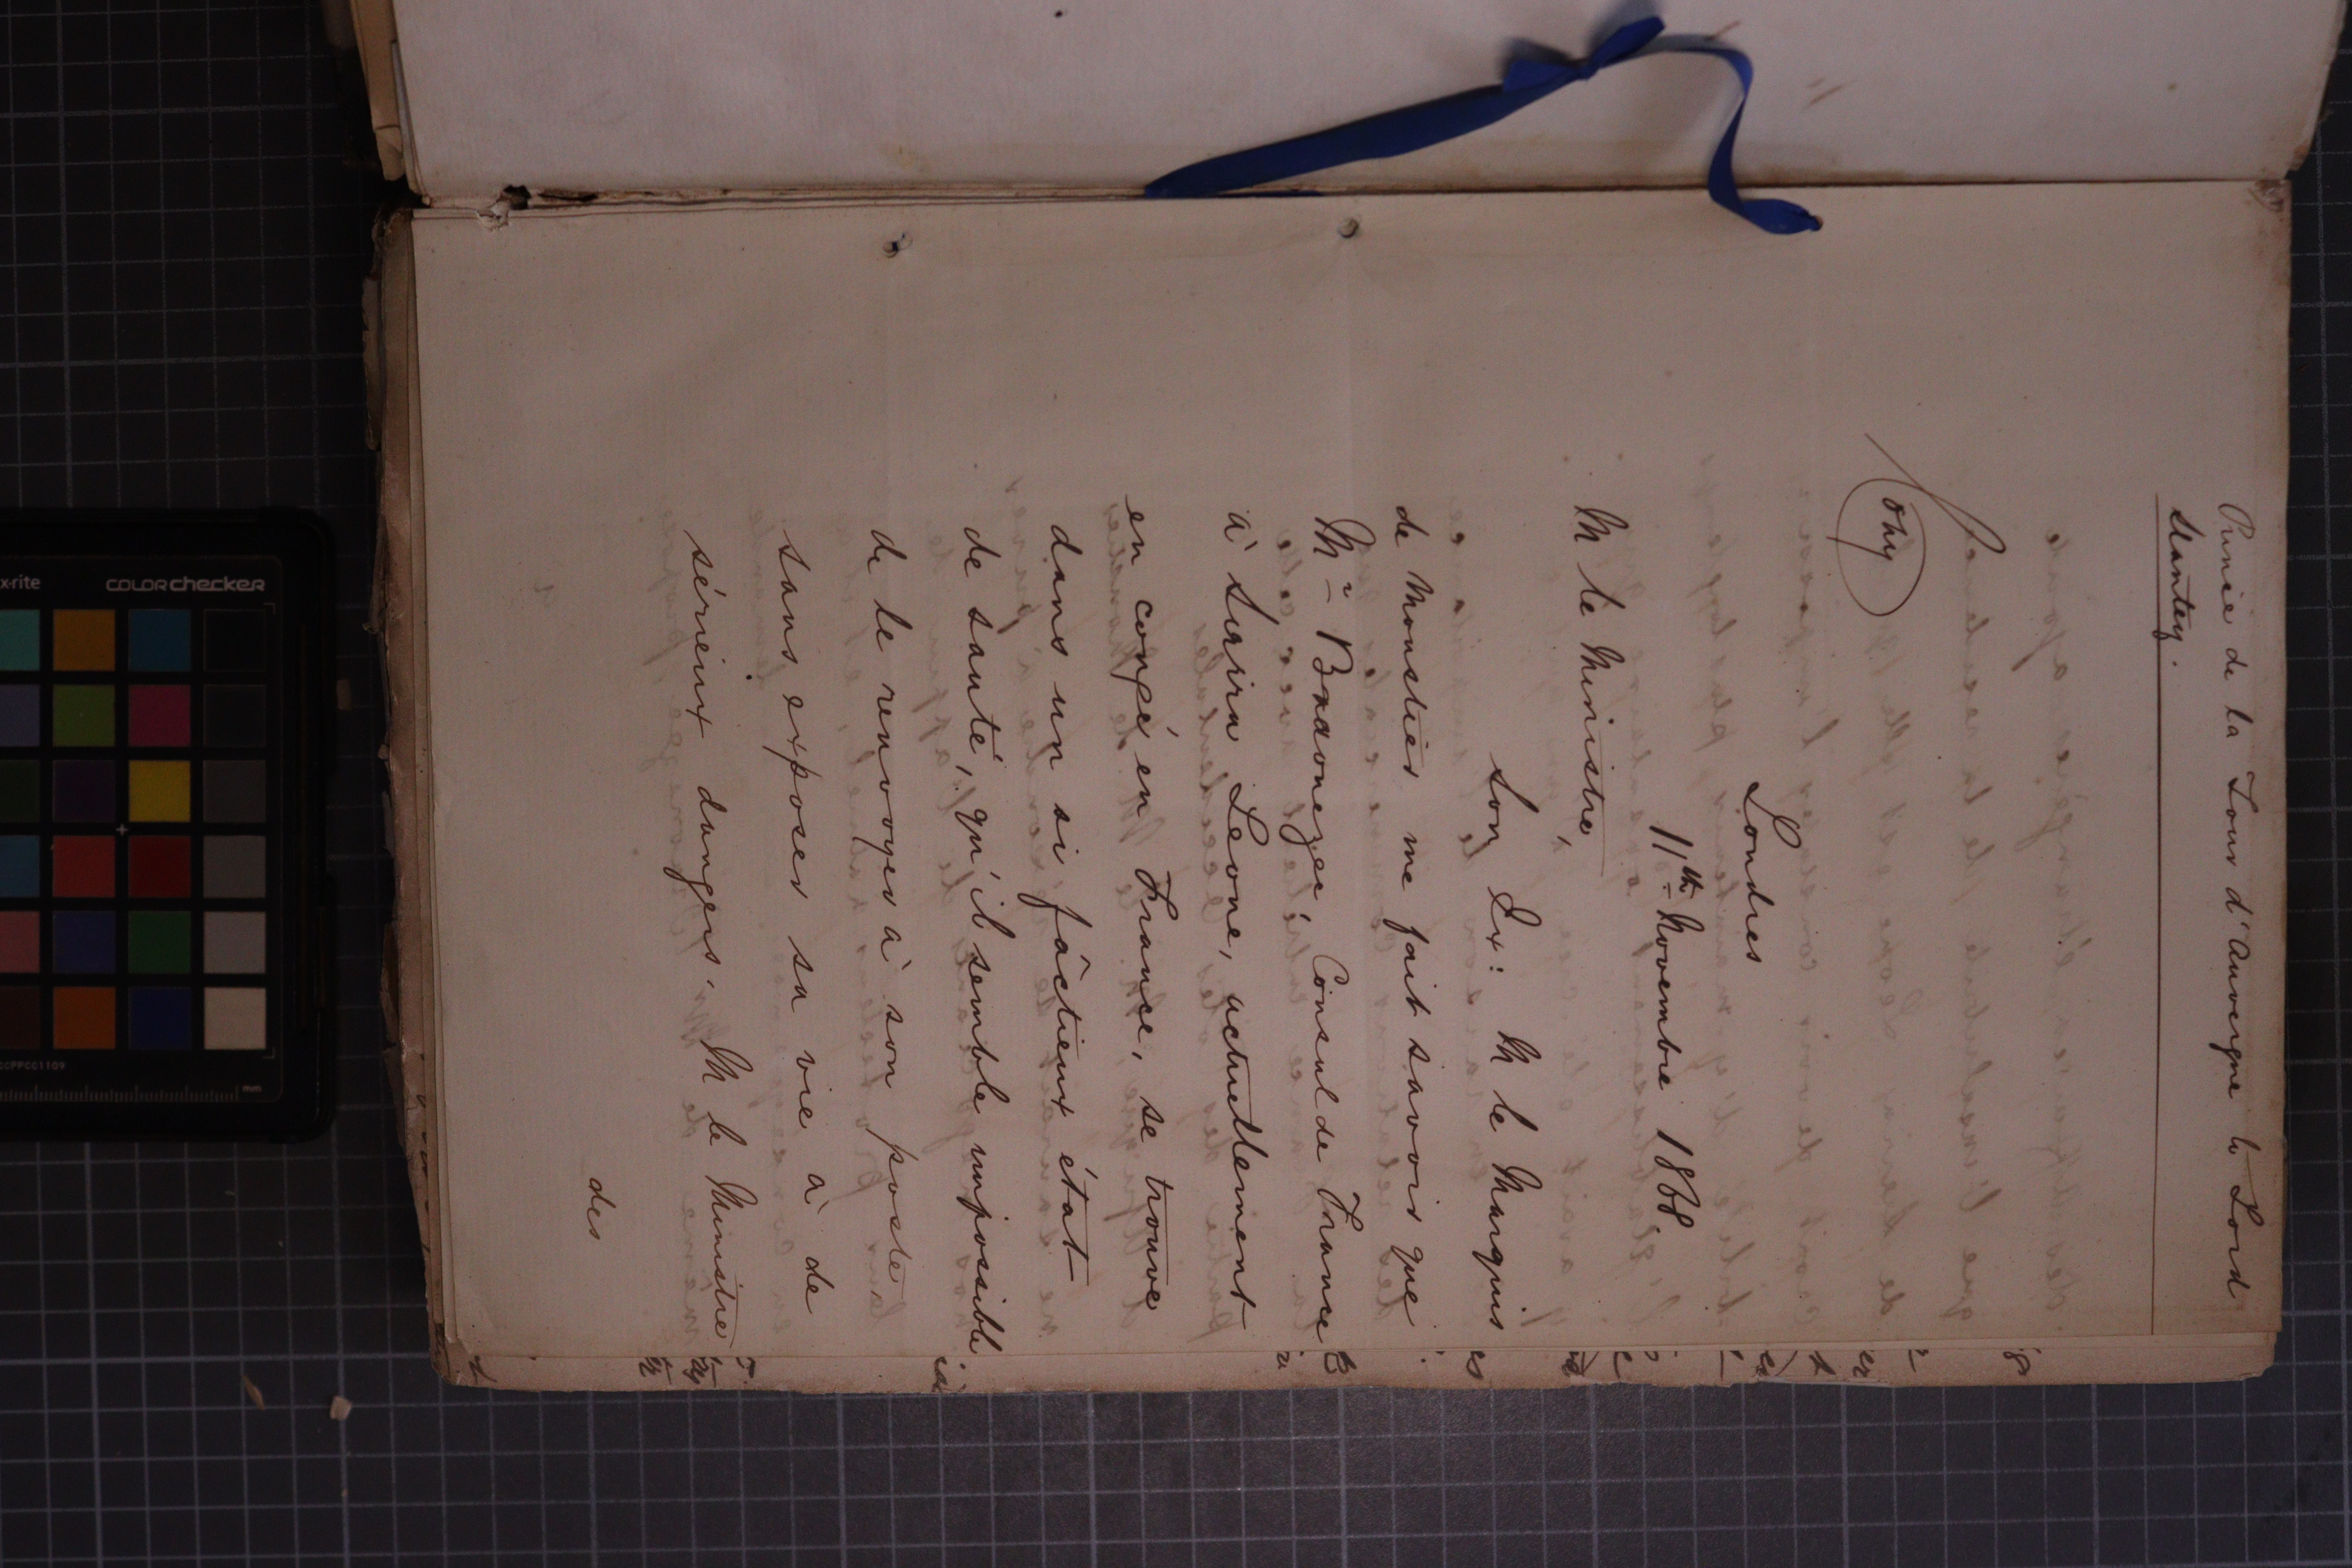 Prince de la Tour d'Auvergne to Lord
Stanley.
Copy
Londres
11th Novembre 1868.
M le Ministre,
Son Ex: M le Marquis
de Moustier me fait savoir que
Mr Braouezec, Consul de France
à Sierra Leone, actuellement
en congé en France, se trouve
dans un si fâcheux état
de santé, qu'il semble impossible
de le renvoyer à son poste
sans exposer sa vie à de
sérieux dangers. M le Ministre
des
x-rite
colorchecker
CCPPCC1109
mm